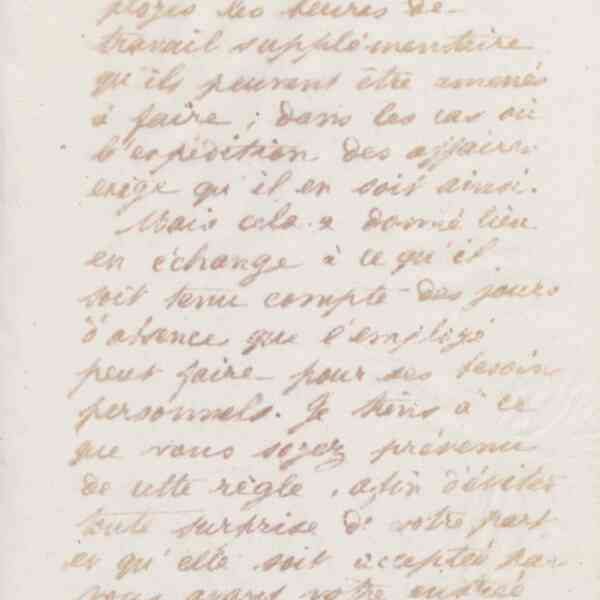 ployés les heures de
travail supplémentaire
qu'ils peuvent être amenés
à faire ; dans les cas où
l'expédition des affaires
exige qu'il en soit ainsi.
Mais cela a donné lieu
en échange à ce qu'il
soit tenu compte des jours
d'absence que l'employé
peut faire pour ses besoins
personnels. Je tiens à ce
que vous soyez prévenu
de cette règle, afin d'éviter
toute surprise de votre part
et qu'elle soit acceptée par
vous avant votre entrée